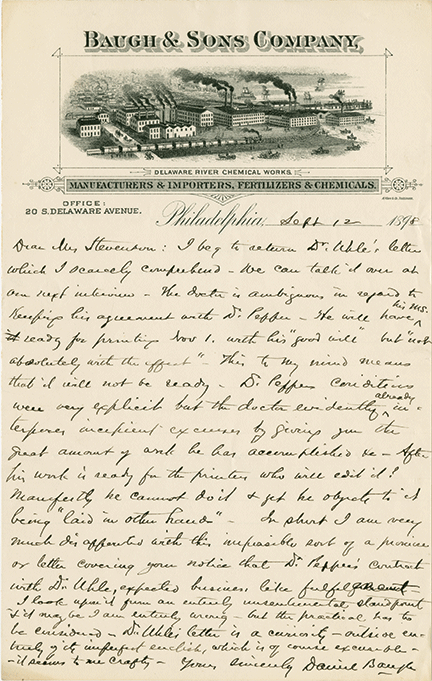 BAUGH & SONS COMPANY,
DELAWARE RIVER CHEMICAL WORKS.
MANUFACTURERS & IMPORTERS, FERTILIZERS & CHEMICALS.
OFFICE:
20 S. DELAWARE AVENUE.
Philadelphia, Sept 12 1898
Dear Mrs Stevenson: I beg to return Dr Uhle's letter
which I scarcely comprehend - We can talk it over at
our next interview - The doctor is ambiguous in regard to
keeping his agreement with Dr Pepper - He will have his MS.
ready for printing Nov 1. with his "good will" but "not
absolutely with the effect" - This to my mind means
that it will not be ready - Dr Peppers conditions
were very explicit but the doctor evidently already in-
terposes incipient excuses by giving you the
great amount of work he has accomplished &c - After
his work is ready for the printers who will edit it?
Manifestly he cannot do it & yet he objects to it
being "laid in other hands" - In short I am very
much disappointed with this impossible sort of a promise
or letter covering your notice that Dr Pepper's contract
with Dr Uhle, expected business like fulfil
I look upon it from an entirely unsentimental standpoint
& it may be I am entirely wrong - but the practical has to
be considered - Dr Uhle's letter is a curiosity - outside en-
tirely of its imperfect english, which is of course excusable -
- it seems to me crafty - Yours Sincerely Daniel Baugh